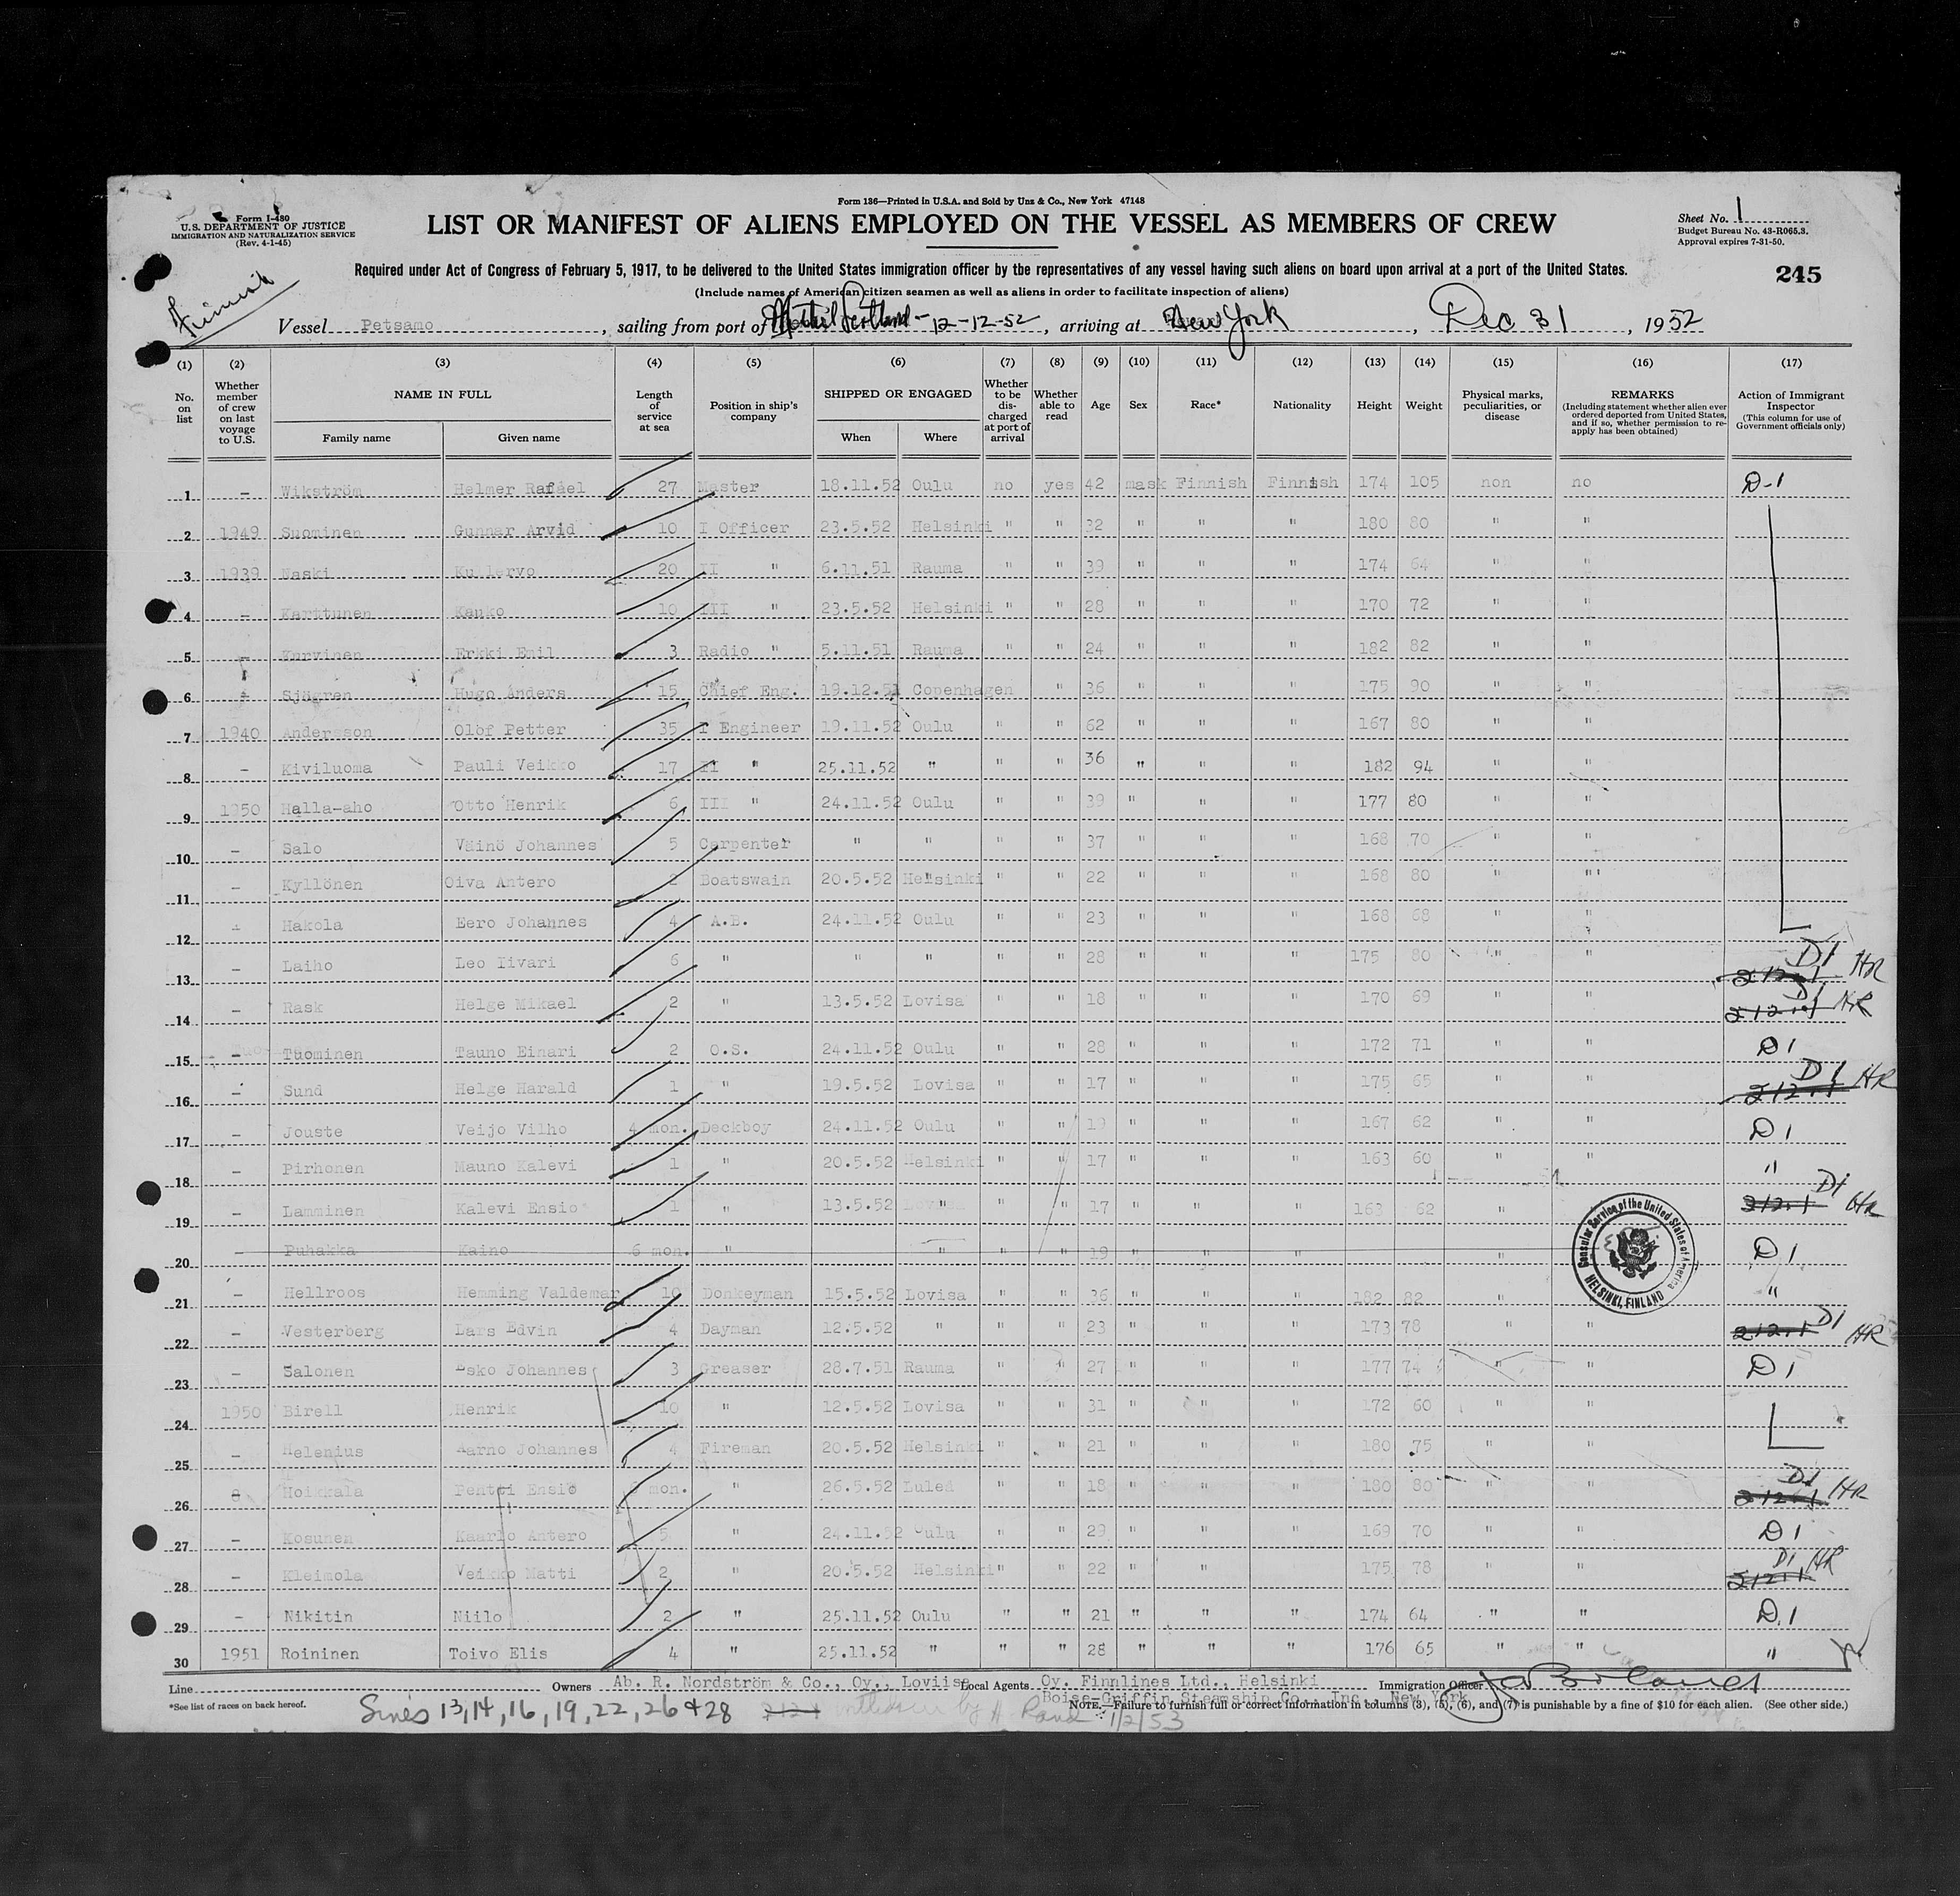 Form 136—Printed in U.S.A. and Sold by Unz & Co., New York 47148
Form I-480
U.S. DEPARTMENT OF JUSTICE
IMMIGRATION AND NATURALIZATION SERVICE
(Rev. 4-1-45)
LIST OR MANIFEST OF ALIENS EMPLOYED ON THE VESSEL AS MEMBERS OF CREW
Sheet No. 1
Budget Bureau No. 43-R065.3.
Approval expires 7-31-50.
Required under Act of Congress of February 5, 1917, to be delivered to the United States immigration officer by the representatives of any vessel having such aliens on board upon arrival at a port of the United States.
245
(Include names of American citizen seamen as well as aliens in order to facilitate inspection of aliens)
Finnish
Vessel Petsamo, sailing from port of Methil Scotland - 12-12-52, arriving at New York, Dec 31, 1952
(1) (2) (3) (4) (5) (6) (7) (8) (9) (10) (11) (12) (13) (14) (15) (16) (17)
No. on list
Whether member of crew on last voyage to U.S.
NAME IN FULL
Family name Given name
Length of service at sea
Position in ship's company
SHIPPED OR ENGAGED
When Where
Whether to be discharged at port of arrival
Whether able to read
Age
Sex
Race*
Nationality
Height
Weight
Physical marks, peculiarities, or disease
REMARKS
(Including statement whether alien ever ordered deported from United States, and if so, whether permission to reapply has been obtained)
Action of Immigrant Inspector
(This column for use of Government officials only)
1 – Wikström Helmer Rafael 27 Master 18.11.52 Oulu no yes 42 mask Finnish Finnish 174 105 non no D-1
2 1949 Suominen Gunnar Arvid 10 I Officer 23.5.52 Helsinki " " 32 " " " 180 80 " "
3 1939 Naski Kullervo 20 II " 6.11.51 Rauma " " 39 " " " 174 64 " "
4 – Karttunen Kauko 10 III " 23.5.52 Helsinki " " 28 " " " 170 72 " "
5 – Kurvinen Erkki Emil 3 Radio " 5.11.51 Rauma " " 24 " " " 182 82 " "
6 Sjögren Hugo Anders 15 Chief Eng. 19.12.51 Copenhagen " 36 " " " 175 90 " "
7 1940 Andersson Olof Petter 35 I Engineer 19.11.52 Oulu " " 62 " " " 167 80 " "
8 – Kiviluoma Pauli Veikko 17 II " 25.11.52 " " " 36 " " " 182 94 " "
9 1950 Halla-aho Otto Henrik 6 III " 24.11.52 Oulu " " 39 " " " 177 80 " "
10 – Salo Väinö Johannes 5 Carpenter " " " " 37 " " " 168 70 " "
11 – Kyllönen Oiva Antero 2 Boatswain 20.5.52 Helsinki " " 22 " " " 168 80 " "
12 Hakola Eero Johannes 4 A.B. 24.11.52 Oulu " " 23 " " " 168 68 " "
13 – Laiho Leo Iivari 6 " " " " " 28 " " " 175 80 " " 212.1 D1 HR
14 – Rask Helge Mikael 2 " 13.5.52 Lovisa " " 18 " " " 170 69 " " 212.1 D1 HR
15 – Tuominen Tauno Einari 2 O.S. 24.11.52 Oulu " " 28 " " " 172 71 " " D1
16 – Sund Helge Harald 1 " 19.5.52 Lovisa " " 17 " " " 175 65 " " 212.1 D1 HR
17 – Jouste Veijo Vilho 4 mon. Deckboy 24.11.52 Oulu " " 19 " " " 167 62 " " D1
18 – Pirhonen Mauno Kalevi 1 " 20.5.52 Helsinki " " 17 " " " 163 60 " " "
19 – Lamminen Kalevi Ensio 1 " 13.5.52 Lovisa " " 17 " " " 163 62 " 212.1 D1 HR
20 – Puhakka Kaino 6 mon. " " " " 19 " " " " D1
21 – Hellroos Hemming Valdemar 10 Donkeyman 15.5.52 Lovisa " " 36 " " " 182 82 " "
22 – Vesterberg Lars Edvin 4 Dayman 12.5.52 " " " 23 " " " 173 78 " " 212.1 D1 HR
23 – Salonen Esko Johannes 3 Greaser 28.7.51 Rauma " " 27 " " " 177 74 " " D1
24 1950 Birell Henrik 10 " 12.5.52 Lovisa " " 31 " " " 172 60 " "
25 – Helenius Aarno Johannes 4 Fireman 20.5.52 Helsinki " " 21 " " " 180 75 " "
26 Hoikkala Pentti Ensio mon. " 26.5.52 Luleå " " 18 " " " 180 80 " " 212.1 D1 HR
27 – Kosunen Kaarlo Antero 5 " 24.11.52 Oulu " " 29 " " " 169 70 " " D1
28 – Kleimola Veikko Matti 2 " 20.5.52 Helsinki " " 22 " " " 175 78 " " 212.1 D1 HR
29 – Nikitin Niilo 2 " 25.11.52 Oulu " " 21 " " " 174 64 " " D.1
30 1951 Roininen Toivo Elis 4 " 25.11.52 " " " 28 " " " 176 65 " " "
Consular Service of the United States of America
HELSINKI, FINLAND
Line Owners Ab. R. Nordström & Co., Oy., Loviisa Local Agents Oy. Finnlines Ltd., Helsinki Immigration Officer
Boise-Griffin Steamship Co., Inc., New York
*See list of races on back hereof.
NOTE.—Failure to furnish full or correct information in columns (3), (5), (6), and (7) is punishable by a fine of $10 for each alien. (See other side.)
13, 14, 16, 19, 22, 26 + 28 212.1 by H Rand 1/2/53